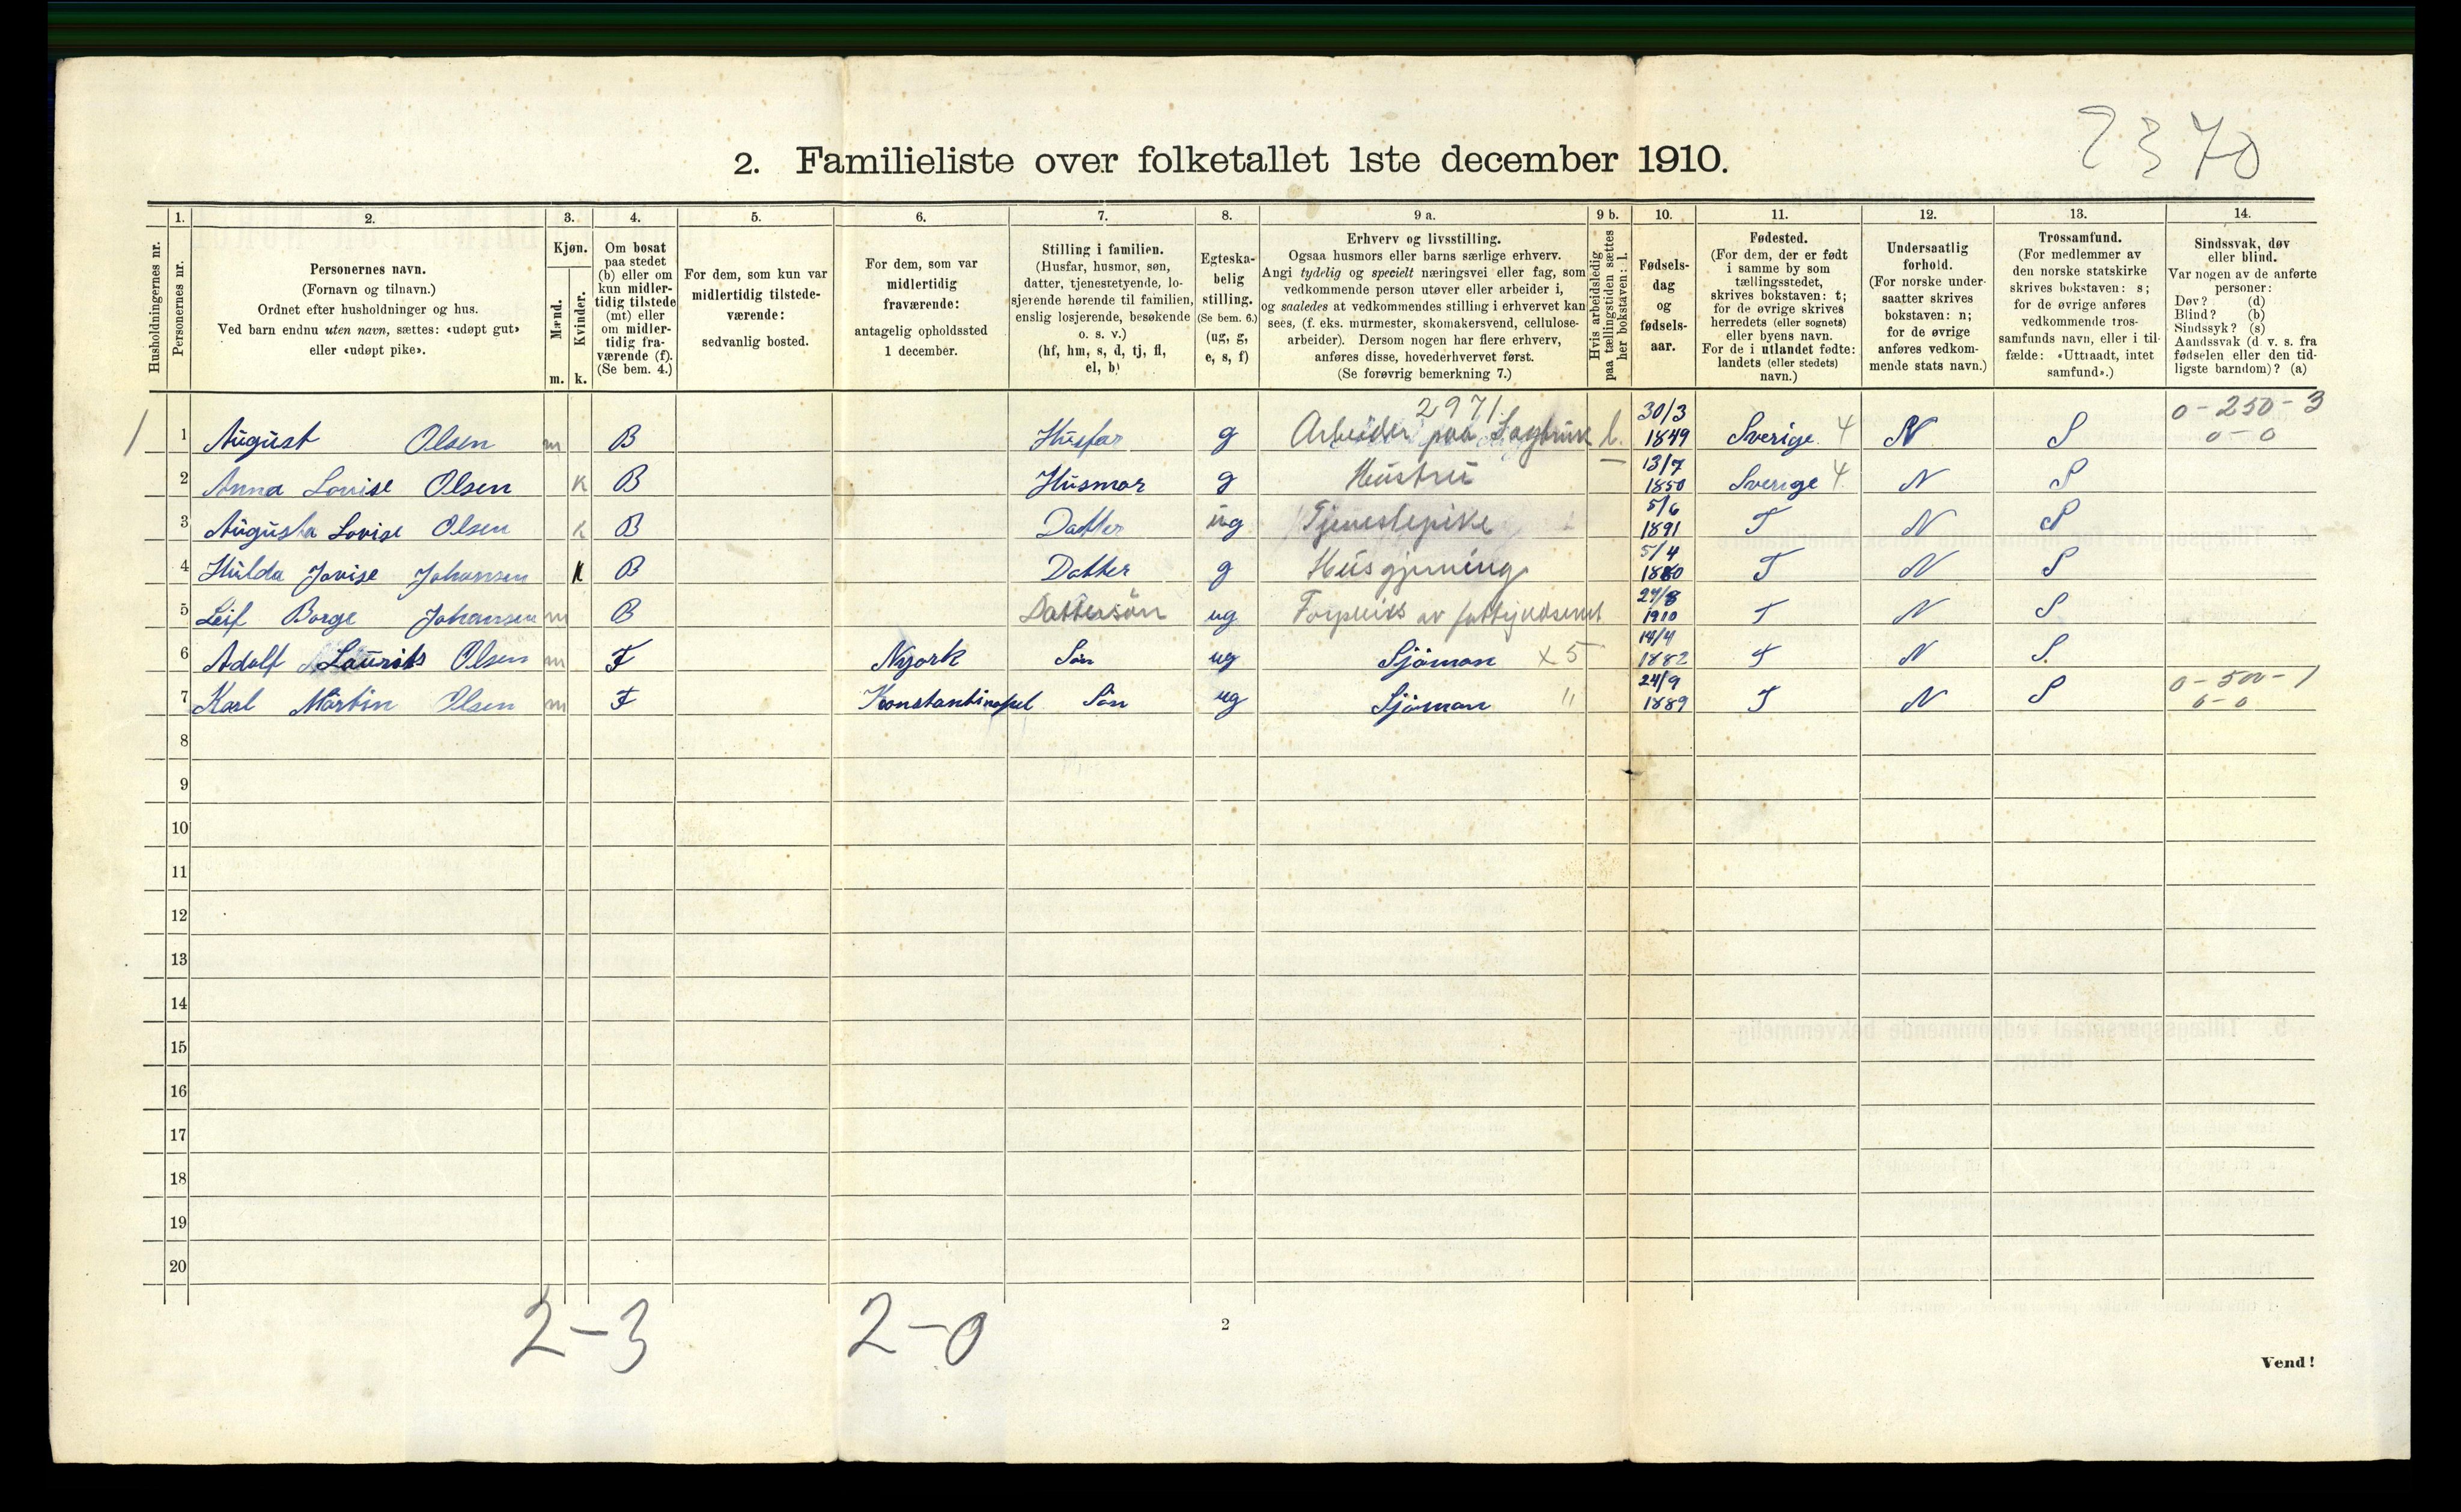 2370
2. Familieliste over folketallet 1ste december 1910.
Husholdningernes nr.
1.
Personernes nr.
2.
Personernes navn.
(Fornavn og tilnavn.)
Ordnet efter husholdninger og hus.
Ved barn endnu uten navn, sættes: «udøpt gut»
eller «udøpt pike».
3.
Kjøn.
Mænd.
Kvinder.
m.
k.
4.
Om bosat
paa stedet
(b) eller om
kun midler-
tidig tilstede
(mt) eller
om midler-
tidig fra-
værende (f).
(Se bem. 4.)
5.
For dem, som kun var
midlertidig tilstede-
værende:
sedvanlig bosted.
6.
For dem, som var
midlertidig
fraværende:
antagelig opholdssted
1 december.
7.
Stilling i familien.
(Husfar, husmor, søn,
datter, tjenestetyende, lo-
sjerende hørende til familien,
enslig losjerende, besøkende
o. s. v.)
(hf, hm, s, d, tj, fl,
el, b)
8.
Egteska-
belig
stilling.
(Se bem. 6.)
(ug, g,
e, s, f)
9 a.
Erhverv og livsstilling.
Ogsaa husmors eller barns særlige erhverv.
Angi tydelig og specielt næringsvei eller fag, som
vedkommende person utøver eller arbeider i,
og saaledes at vedkommendes stilling i erhvervet kan
sees, (f. eks. murmester, skomakersvend, cellulose-
arbeider). Dersom nogen har flere erhverv,
anføres disse, hovederhvervet først.
(Se forøvrig bemerkning 7.)
9 b.
Hvis arbeidsledig
paa tællingstiden sættes
her bokstaven: l.
10.
Fødsels-
dag
og
fødsels-
aar.
11.
Fødested.
(For dem, der er født
i samme by som
tællingsstedet,
skrives bokstaven: t;
for de øvrige skrives
herredets (eller sognets)
eller byens navn.
For de i utlandet fødte:
landets (eller stedets)
navn.)
12.
Undersaatlig
forhold.
(For norske under-
saatter skrives
bokstaven: n;
for de øvrige
anføres vedkom-
mende stats navn.)
13.
Trossamfund.
(For medlemmer av
den norske statskirke
skrives bokstaven: s;
for de øvrige anføres
vedkommende tros-
samfunds navn, eller i til-
fælde: «Uttraadt, intet
samfund».)
14.
Sindssvak, døv
eller blind.
Var nogen av de anførte
personer:
Døv? (d)
Blind? (b)
Sindssyk? (s)
Aandssvak (d. v. s. fra
fødselen eller den tid-
ligste barndom)? (a)
2971. 30/3 0-250-3
1 1 August Olsen m B Husfar g Arbeider paa Sagbruk l. 1849 Sverige 4 N S 0-0
2 Anna Lovise Olsen k B Husmor g Hustru — 13/7 1850 Sverige 4 N S
3 Augusta Lovise Olsen k B Datter ug Tjenestepike 5/6 1891 T N S
4 Hulda Jovise Johansen k B Datter g Husgjerning 5/4 1880 T N S
5 Leif Borge Johansen m B Dattersön ug av 27/8 1910 T N S
6 Adolf Laurits Olsen m F Nyork Sön ug Sjöman x 5 14/4 1882 T N S.
7 Karl Martin Olsen m F Konstantinopel Sön ug Sjöman " 24/9 1889 T N S 0-500-1
0-0
8
9
10
11
12
13
14
15
16
17
18
19
20
2-3 2-0
2
Vend!